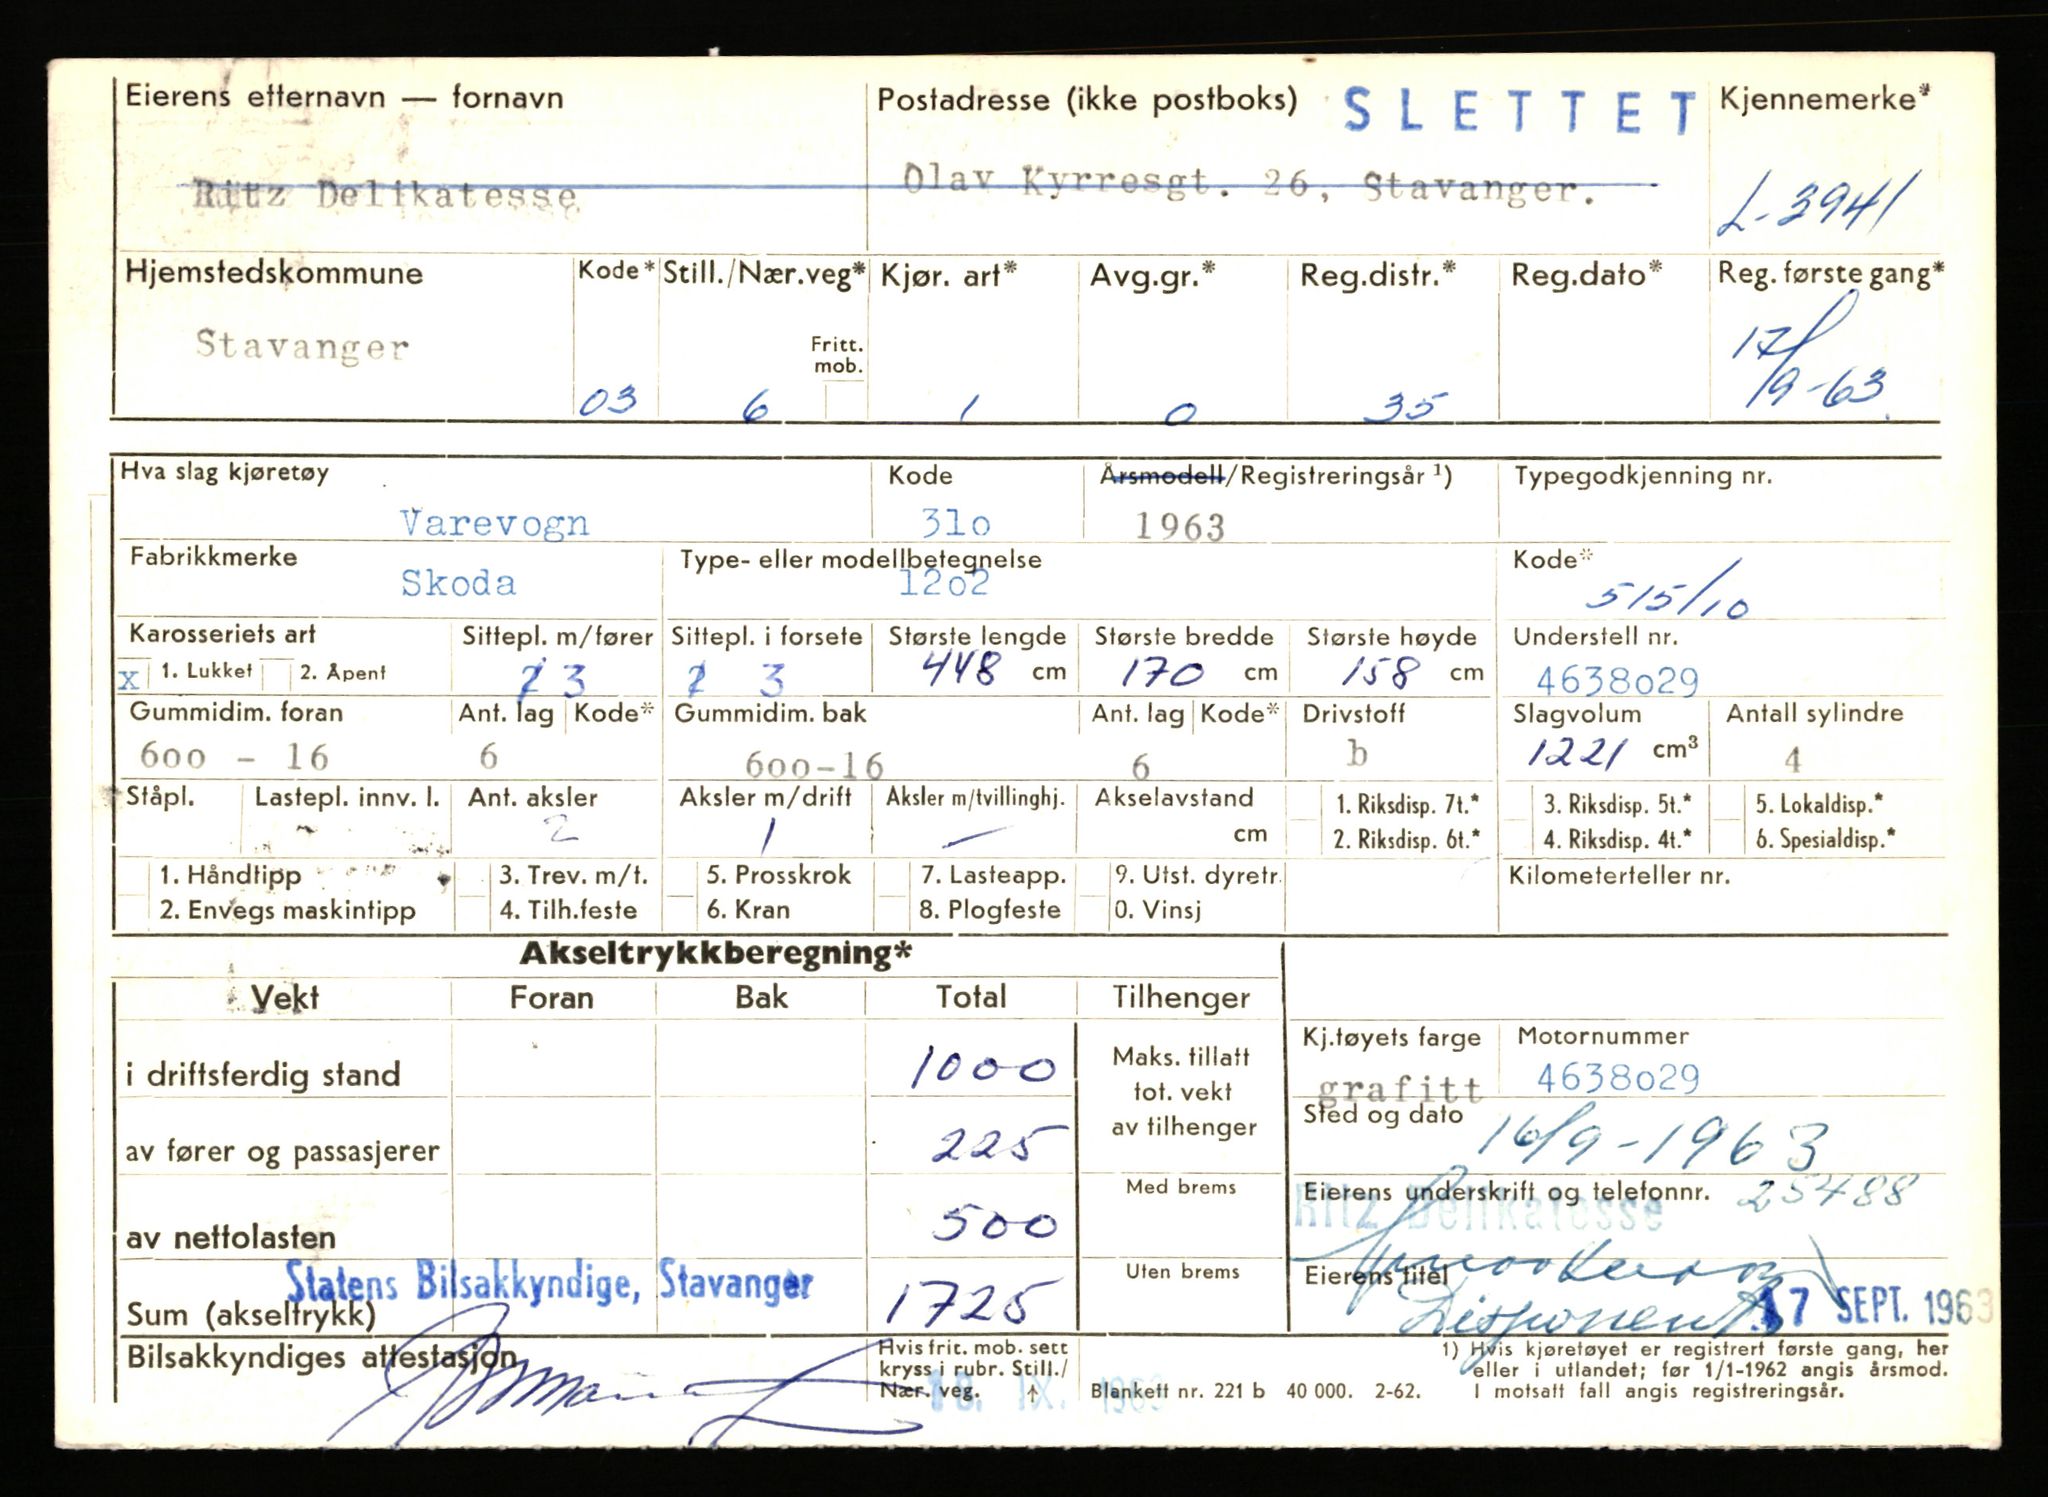 Eierens etternavn — fornavn
Postadresse (ikke postboks)
SLETTET
Kjennemerke*
Ritz Delikatesse
Olav Kyrresgt. 26, Stavanger.
L-3941
Hjemstedskommune
Kode*
Still./Nær.veg*
Kjør. art*
Avg.gr.*
Reg.distr.*
Reg.dato*
Reg. første gang*
Stavanger
Fritt. mob.
03
6
1
0
35
17/9-63
Hva slag kjøretøy
Kode
Årsmodell/Registreringsår ¹)
Typegodkjenning nr.
Varevogn
31o
1963
Fabrikkmerke
Type- eller modellbetegnelse
Kode*
Skoda
12o2
515/10
Karosseriets art
Sittepl. m/fører
Sittepl. i forsete
Største lengde
Største bredde
Største høyde
Understell nr.
x 1. Lukket 2. Åpent
3
3
448 cm
170 cm
158 cm
4638o29
Gummidim. foran
Ant. lag
Kode*
Gummidim. bak
Ant. lag
Kode*
Drivstoff
Slagvolum
Antall sylindre
6oo - 16
6
6oo-16
6
b
1221 cm³
4
Ståpl.
Lastepl. innv. l.
Ant. aksler
Aksler m/drift
Aksler m/tvillinghj.
Akselavstand
1. Riksdisp. 7t.*
3. Riksdisp. 5t.*
5. Lokaldisp.*
-
2
1
—
cm
2. Riksdisp. 6t.*
4. Riksdisp. 4t.*
6. Spesialdisp.*
1. Håndtipp
3. Trev. m/t.
5. Prosskrok
7. Lasteapp.
9. Utst. dyretr.
Kilometerteller nr.
2. Envegs maskintipp
4. Tilh.feste
6. Kran
8. Plogfeste
0. Vinsj
Akseltrykkberegning*
Vekt
Foran
Bak
Total
Tilhenger
i driftsferdig stand
1000
Maks. tillatt
tot. vekt
av tilhenger
Kj.tøyets farge
Motornummer
grafitt
4638o29
av fører og passasjerer
225
Sted og dato
16/9-1963
Med brems
Eierens underskrift og telefonnr. 25488
Ritz Delikatesse
av nettolasten
500
Statens Bilsakkyndige, Stavanger
Uten brems
Eierens titel
Disponent
17 SEPT. 1963
Sum (akseltrykk)
1725
Bilsakkyndiges attestasjon
Hvis frit. mob. sett
kryss i rubr. Still./
Nær. veg. ↑
18. IX. 1963
Blankett nr. 221 b 40 000. 2-62.
1) Hvis kjøretøyet er registrert første gang, her
eller i utlandet; før 1/1-1962 angis årsmod.
I motsatt fall angis registreringsår.